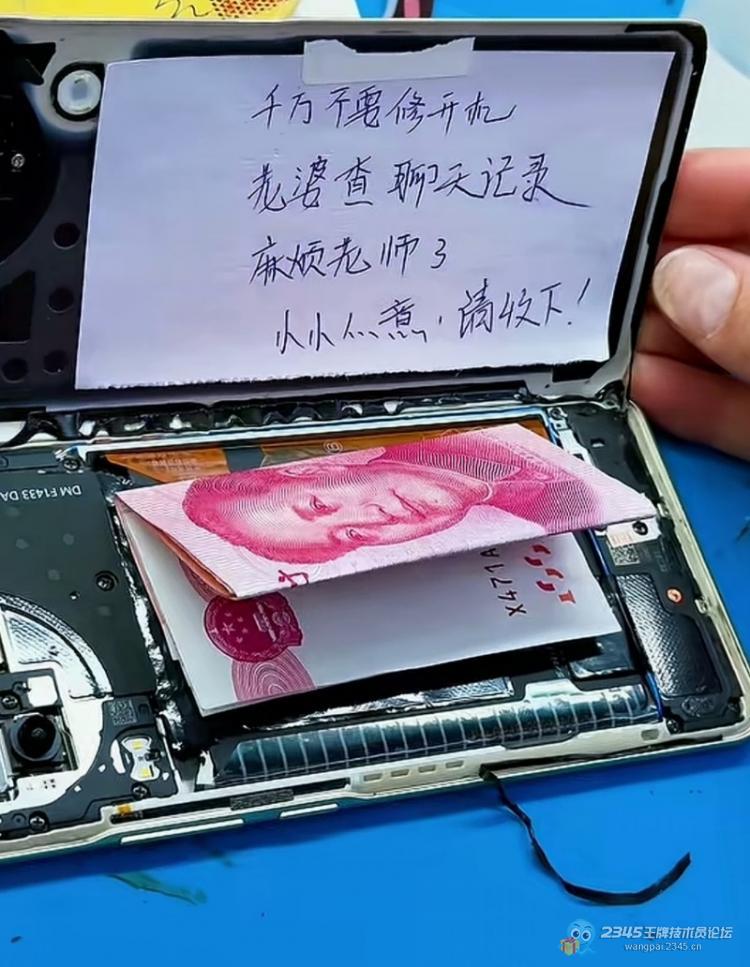 千万不要修开机
老婆查聊天记录
麻烦老师了
小小心意，请收下！
DM F1433 DA
X471A
2345王牌技术员论坛
wangpai.2345.cn